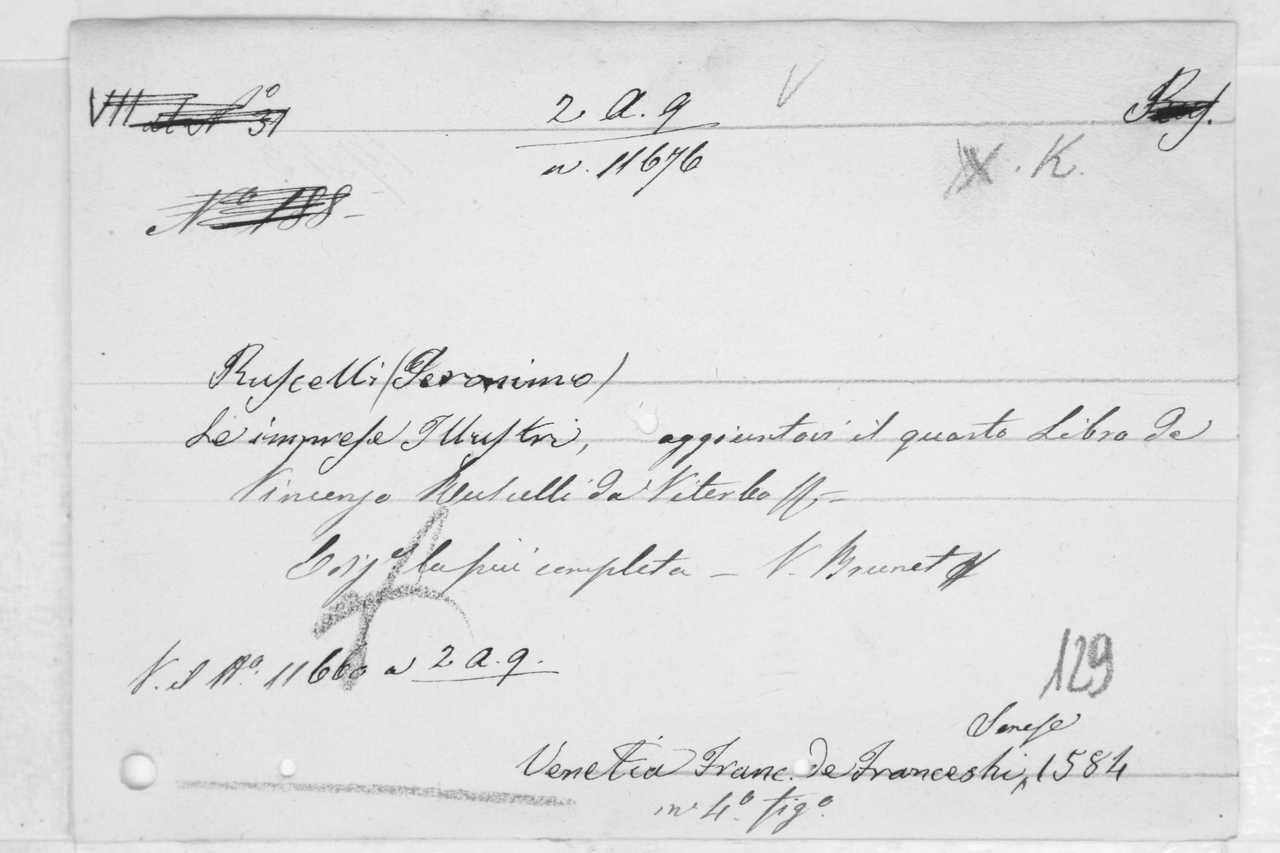 VII al N° 31
2 a. q V
Ruf.
n. 11676
X . K.
N° 188 -
Ruscelli (Jeronimo)
Le imprese Illustri, aggiuntovi il quarto Libro da
Vincenzo Ruscelli da Viterbo
la più completa - V. Brunet
V. il N°. 11660 a 2 a. q.
129
Senese
Venetia Franc. de Franceshi, 1584
in 4.° fig°.